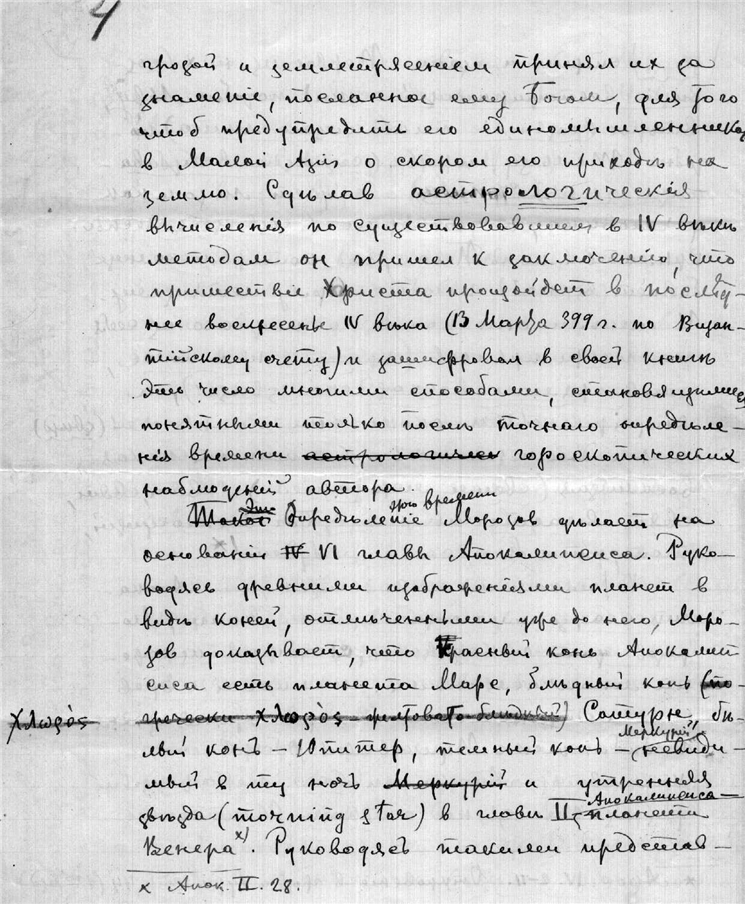 4
грозой и землетрясеніем принял их за
знаменіе, посланное ему Богом, для того
чтоб предупредить его единомышленников
в Малой Азіи о скором его приходѣ на
землю. Сдѣлав астрологическія
вычисленія по существовавшим в IV вѣкѣ
методам он пришел к заключенію, что
пришествіе Христа произойдет в послѣд-
нее воскресенье IV века (13 Марта 399 г. по Визан-
тійскому счету) и зашифровал в своей книгѣ
это число многими способами, становящимися
понятными только послѣ точнаго опредѣле-
нія времени астрологичес гороскопических
наблюденій автора.
Такое Это опредѣленіе этого времени Морозов дѣлает на
основаніи IV VI главы Апокалипсиса. Руко-
водясь древними изображеніями планет в
видѣ коней, отмѣченными уже до него, Моро-
зов доказывает, что Красный конь Апокалип
сиса есть планета Марс, блѣдный конь (по-
χλωρὸς гречески χλωρὸς - желтовато-блѣдный) Сатурн, бѣ-
лый конь - Юпитер, темный конь - Меркурій невиди-
мый в ту ночь Меркурій и утренняя
звѣзда (morning star) в главѣ II Апокалипсиса - планета
Венера x). Руководясь такими представ-
x Апок. II. 28.